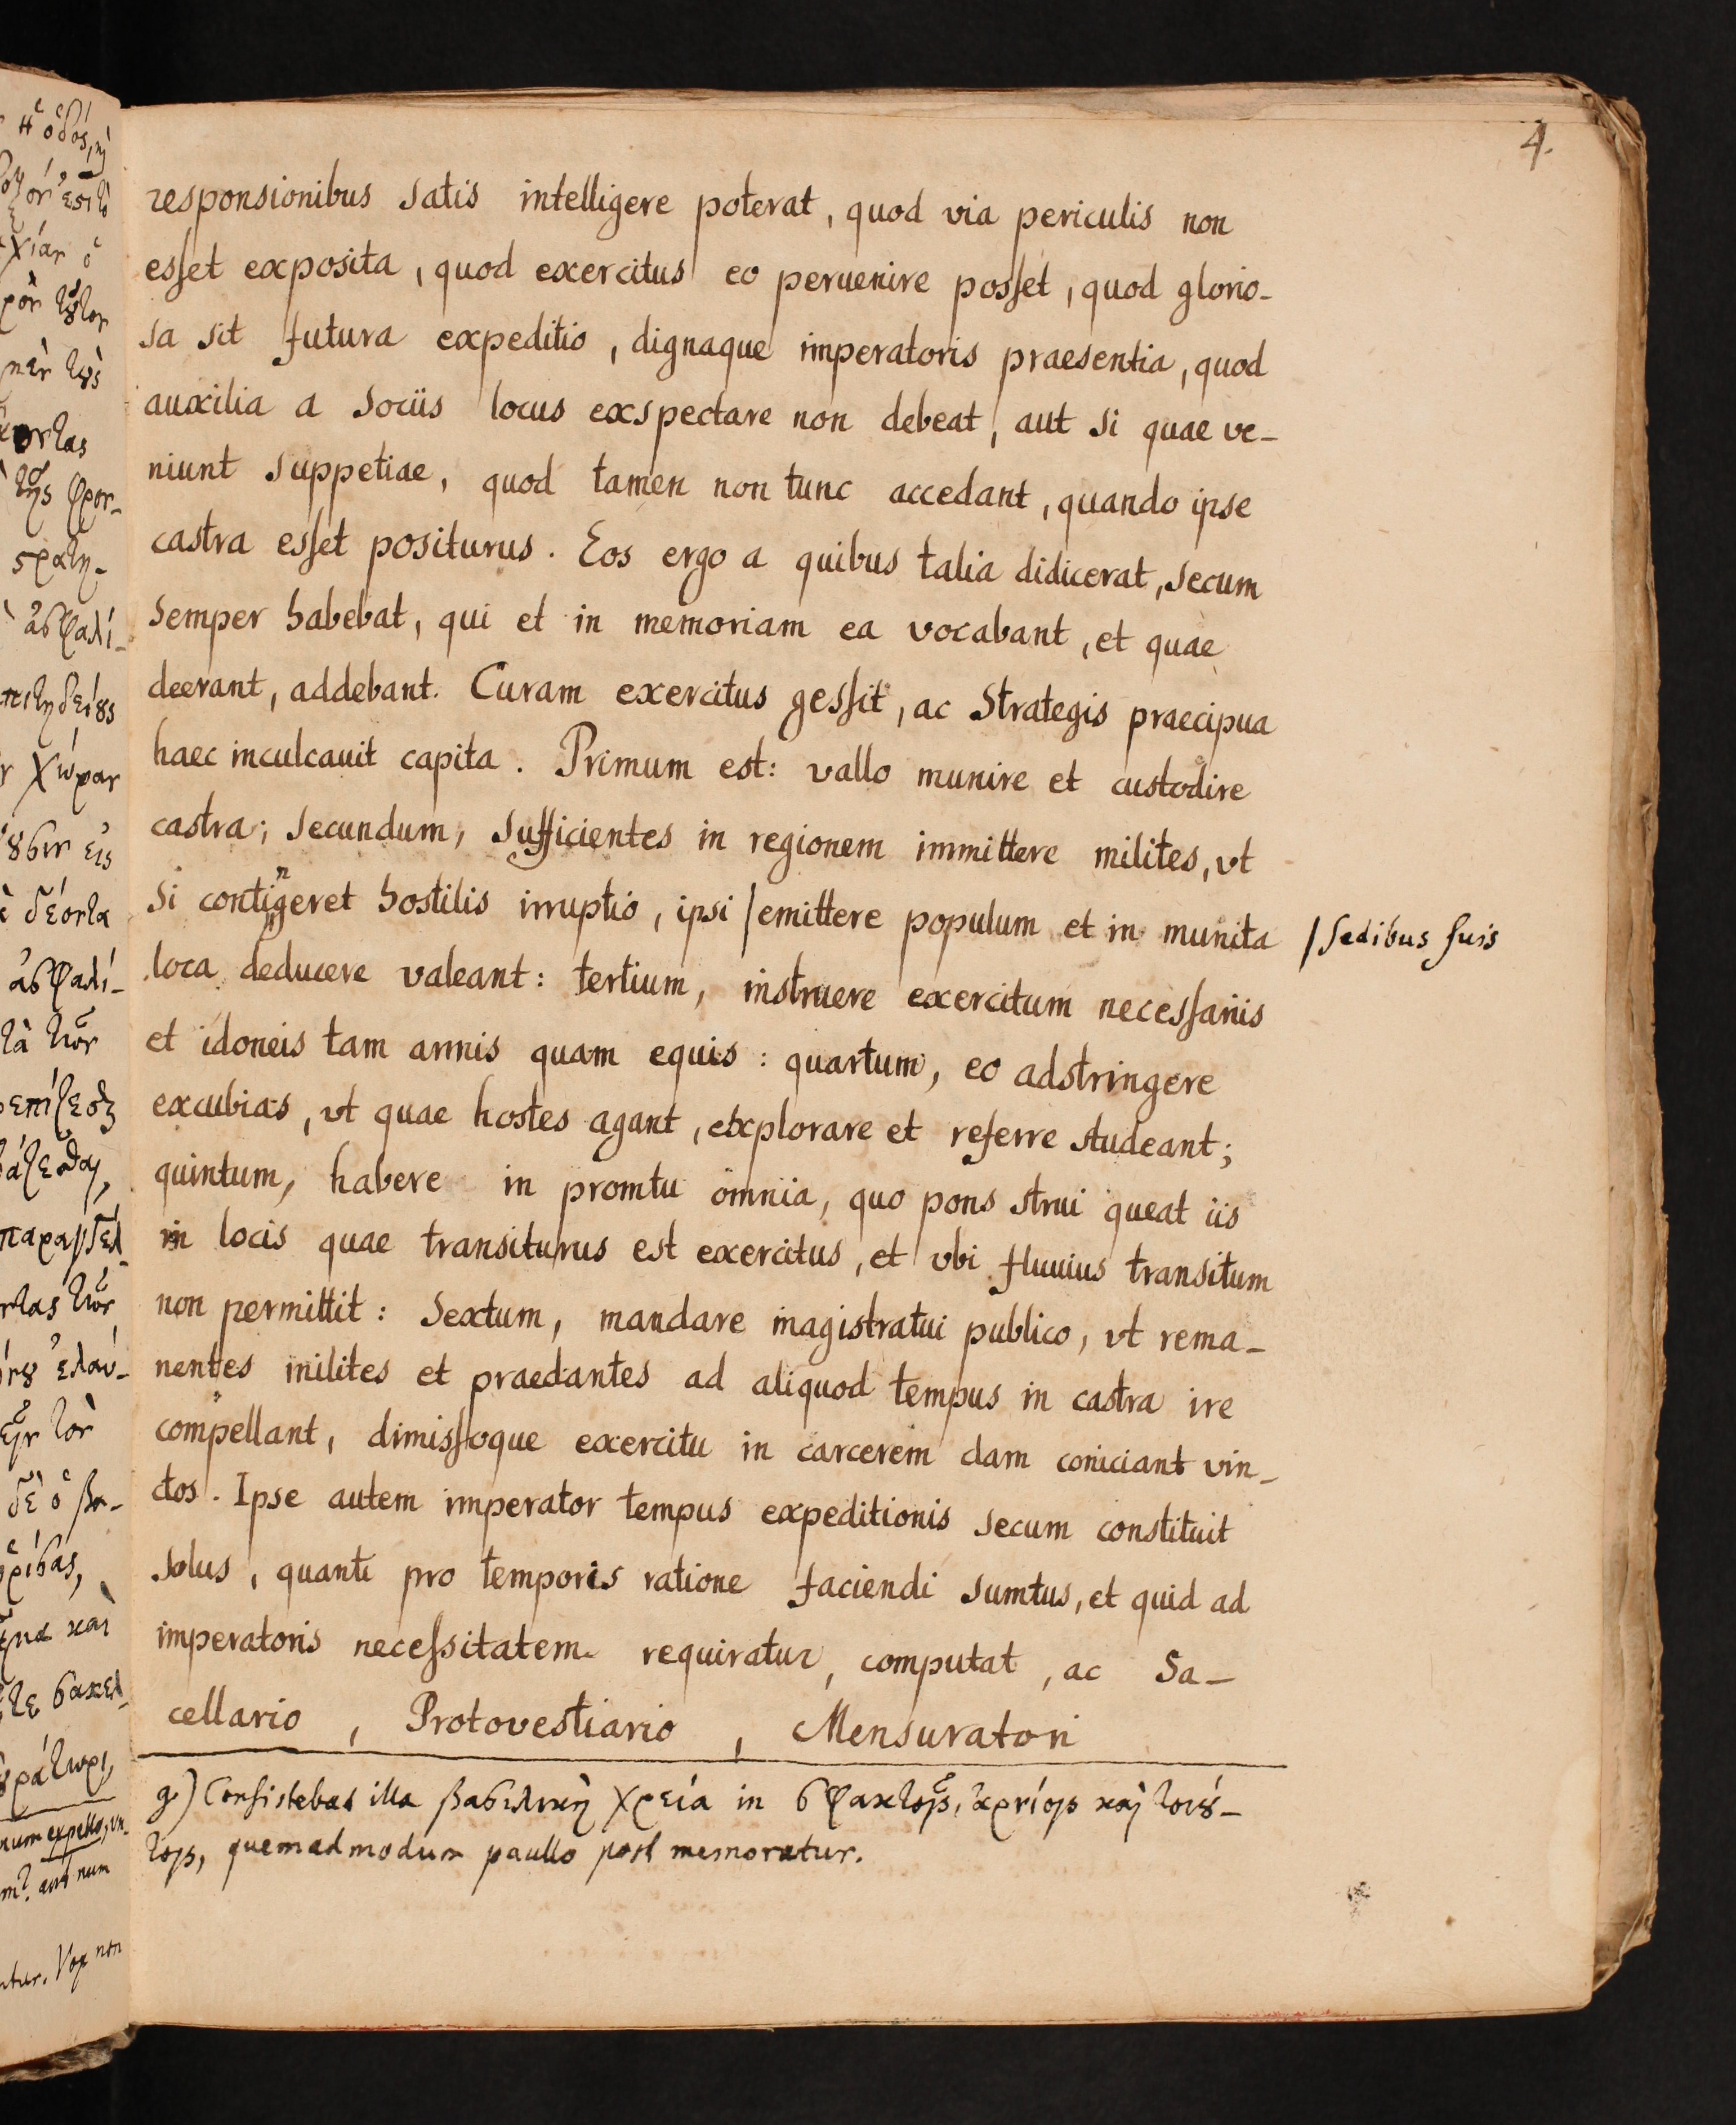 4.
responsionibus satis intelligere poterat, quod via periculis non
esset exposita, quod exercitus eo peruenire posset, quod glorio-
sa sit futura expeditio, dignaque imperatoris praesentia, quod
auxilia a sociis locus exspectare non debeat, aut si quae ve-
niunt suppetiae, quod tamen non tunc accedant, quando ipse
castra esset positurus. Eos ergo a quibus talia didicerat, secum
semper habebat, qui et in memoriam ea vocabant, et quae
deerant, addebant. Curam exercitus gessit, ac Strategis praecipua
haec inculcauit capita. Primum est: vallo munire et custodire
castra; secundum, sufficientes in regionem immittere milites, vt
si contingeret hostilis irruptio, ipsi / emittere populum et in munita
/ sedibus suis
loca deducere valeant: tertium, instruere exercitum necessariis
et idoneis tam armis quam equis: quartum, eo adstringere
excubias, vt quae hostes agant, explorare et referre studeant;
quintum, habere in promtu omnia, quo pons strui queat iis
in locis quae transiturus est exercitus, et vbi fluuius transitum
non permittit: Sextum, mandare magistratui publico, vt rema-
nentes milites et praedantes ad aliquod tempus in castra ire
compellant, dimissoque exercitu in carcerem clam coniciant vin-
ctos. Ipse autem imperator tempus expeditionis secum constituit
solus, quanti pro temporis ratione faciendi sumtus, et quid ad
imperatoris necessitatem requiratur, computat, ac Sa-
cellario, Protovestiario, Mensuratori
g) Consistebat illa βασιλικὴ χρεία in σφακτοῖς, ἀρνίοις καὶ τούσ-
τοις, quemadmodum paullo post memoratur.